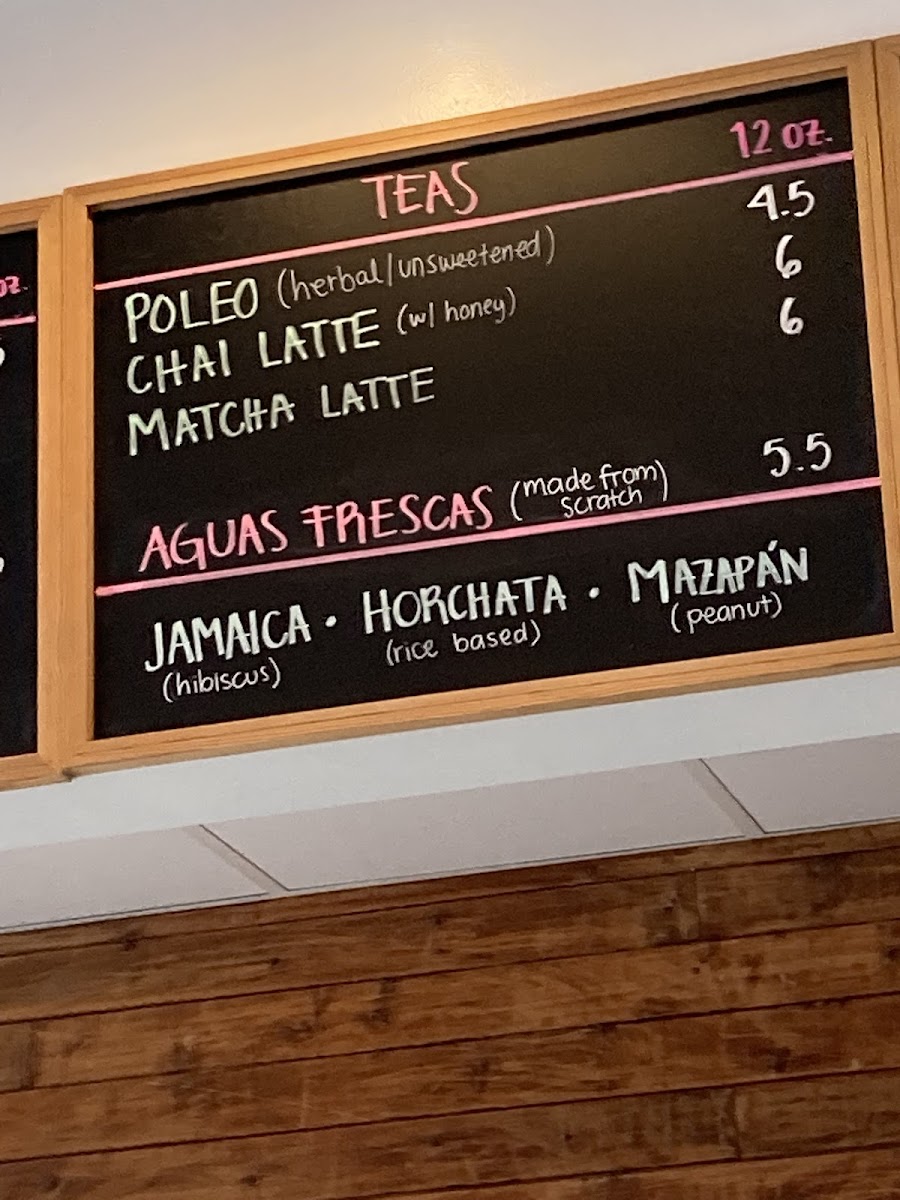 TEAS 12 oz.
POLEO (herbal/unsweetened) 4.5
CHAI LATTE (w/ honey) 6
MATCHA LATTE 6
AGUAS FRESCAS (made from scratch) 5.5
JAMAICA · HORCHATA · MAZAPÁN
(hibiscus) (rice based) (peanut)
oz.